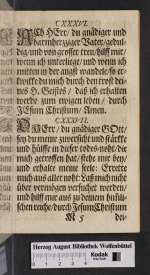 CXXXVI.
ACh HErr / du gnädiger und
barmhertziger Vater / gedul-
dig / und von grosser treu / hilff mir /
wenn ich unterliege / und wenn ich
mitten in der angst wandele / so er-
quicke du mich durch den trost dei-
nes H. Geistes / daß ich erhalten
werde zum ewigen leben / durch
JEsum Christum / Amen.
CXXXVII.
HErr / du gnädiger GOtt /
sey du meine zuversicht und stärcke
und hülffe in dieser todes-noht / die
mich getroffen hat / stehe mir bey /
und erhalte meine seele: Errette
mich aus aller noht: Laß mich nicht
über vermögen versuchet werden /
hilff mir aus zu deinem himli-
schen reiche / durch JEsum Christum
M 5
den
Herzog August Bibliothek Wolfenbüttel